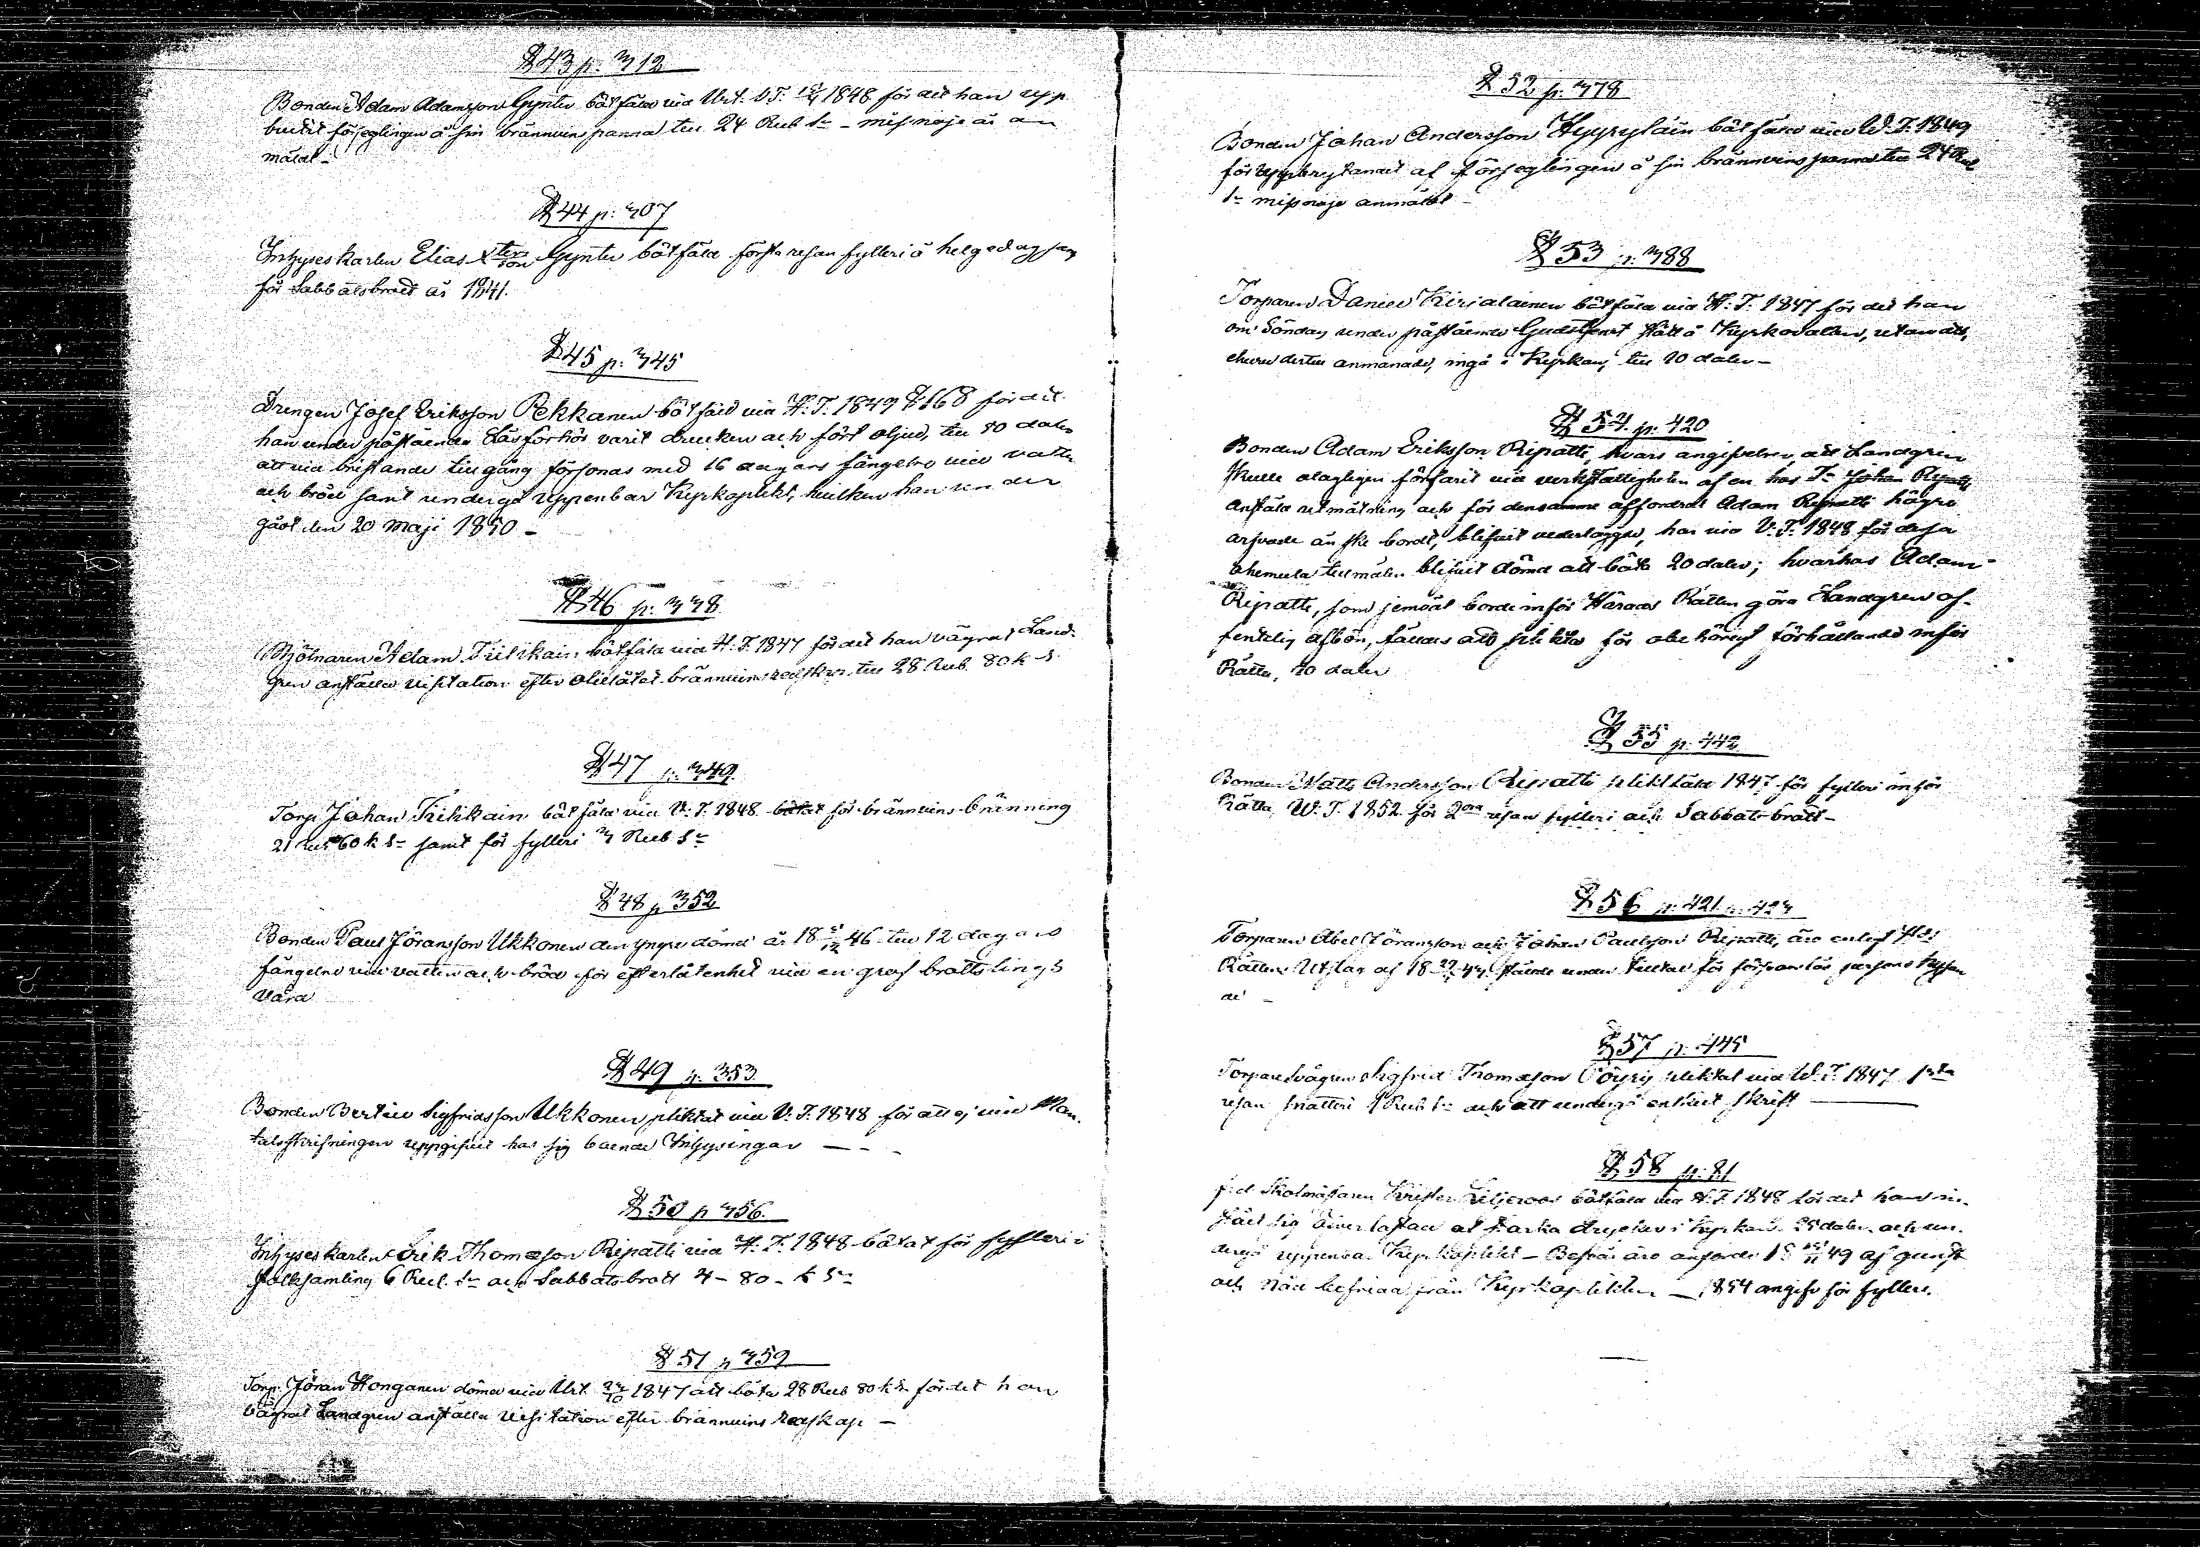 § 43 p. 312
Bonden Adam Adamsson Gynter bötfäld vid Urt. V.T. 1846 för det han upp
brutit förseglingen å sin brännvins panna till 24 Rub Sr – missnöje är an
mäldt –
§ 44 p. 307
Inhyses karlen Elias Gynter bötfäld första resan fylleri å helgedag samt
för Sabbatsbrott år 1841.
§ 45 p. 345
Drengen Josef Eriksson Pekkanen bötfäld vid H. T. 1849 § 168 för det
han under påstående Läsförhör varit drucken och fört oljud, till 10 daler
att vid bristande tillgång försonas med 16 dagars fängelse vid vatten
och bröd samt undergå uppenbar Kyrkoplikt, hvilken han under
gådt den 20 Maji 1850 –
§ 46 p. 348
Mjölnaren Adam Tiilikain bötfäld vid H. T. 1847 för det han vägrat Land-
gren anställa visitation efter olietåtet brännvins redskap till 28 Rub. 80 k S.
§ 47 p. 349
Torp. Johan Tiilikain bötfäld vid V. T. 1848 för brännvins bränning
21 Rub 60 k Sr samt för fylleri 3 Rub Sr
§ 48 p 352
Bonden Paul Jöransson Ukkonen den yngre dömd år 18 46 till 12 dagars
fängelse vid vatten och bröd för efterlåtenhet vid en graf brottslings
vård
§ 49 p. 353
Bonden Bertil Sigfridsson Ukkonen pliktat vid V. T. 1848 för att ej vid Man-
talsskrifningen uppgifvit hos sig boende Inhysingar – – –
§ 50 p 356.
Inhyses karlen Erik Thomasson Ripatti vid H. T. 1848 bötat för fylleri i
folksamling 6 Rub. Sr och Sabbatsbrott 4 – 80 – k Sr
§ 51 p 359
Torp. Jöran Honganen dömd vid Urt. 1847 att böta 28 Rub 80 k Sr för det han
vägrat Landgren anställa visitation efter brännvins redskap –
§ 52 p. 378
Bonden Johan Andersson Hyyryläin bötfäld vid W. T. 1849
för uppbrytandet af förseglingen å sin brännvins panna till 24 Rub
Sr missnöje anmäldt –
§ 53 p. 388
Torparen Daniel Kirjalainen bötfäld vid H. T. 1847 för det han
om Söndag under påstående Gudstjenst stått å Kyrkovallen, utan att,
ehuru dertill anmanad, ingå i Kyrkan, till 10 daler –
§ 54. p. 420
Bonden Adam Eriksson Ripatti, hvars angifvelse att Landgren
skulle olagligen förfarit vid verkställigheten af en hos Johan Ripatti
anstäld utmätning och för densamma affordrat Adam Ripatti högre
arfvode än ske bordt, blifvit vederlagd, har vid V. T. 1848 för dessa
obemälta tillmälen blifvit dömd att böta 20 daler; hvarhos Adam
Ripatti, som jemväl borde inför Härads Rätten göra Landgren of-
fentelig afbön, fäldes att plikta för obehörigt förhållande inför
Rätta, 10 daler
§ 55 p. 442
Bonden Matts Andersson Ripatti pliktfäld 1847 för fylleri inför
Rätta W. T. 1852 för 2dra resan fylleri och Sabbatsbrott –
§ 56 p. 421
Torparen Abel Göransson och Johan Paulsson Ripatti, äro enligt Hds
Rättens Utslag af 18 47 stäldte under tilltal för försvarslös persons hysan
de –
§ 57 p. 445
Torpare Svågren Sigfrid Thomasson Pöyry pliktat vid W. T. 1847 1sta
resan snatteri 1 Rub Sr och att undergå enskilt skrift
§ 58 p. 81
f.d. Skolmästaren Krister Liljeroos bötfäld vid H. T. 1848 för det han in-
stält sig öfverlastad af starka drycker i Kyrkan 25 daler och un-
dergå uppenbar Kyrkoplikt – Besvär äro anförde 18 49 af gunst
och nåd befriad från Kyrkoplikten – 1854 angifv för fylleri.